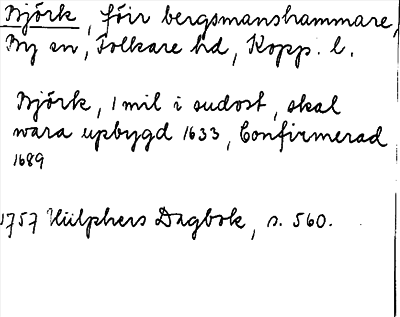 Björk, förr bergsmanshammare,
By sn, Folkare hd, Kopp. l.
Björk, 1 mil i sudost, skal
wara upbygd 1633, Confirmerad
1689
1757 Hülphers Dagbok, s. 560.